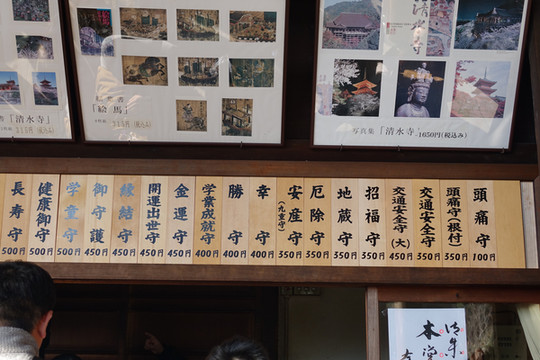 「清水寺」
「絵馬」
写真集「清水寺」1650円(税込み)
頭痛守 100円
頭痛守(根付) 350円
交通安全守 350円
交通安全守(大) 450円
招福守 350円
地蔵守 350円
厄除守 350円
安産守 350円
幸守 400円
勝守 400円
学業成就守 400円
金運守 450円
開運出世守 450円
縁結守 450円
御守護 450円
学童守 500円
健康御守 500円
長寿守 500円
本堂